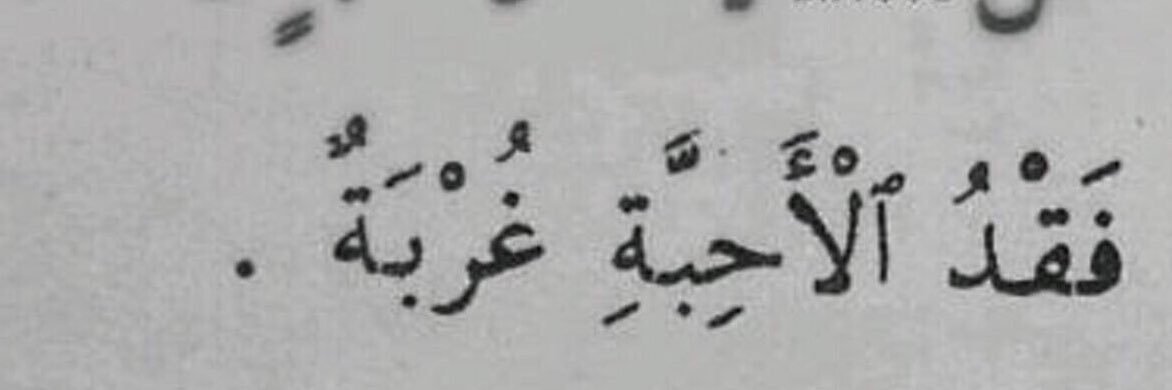 فَقْدُ ٱلْأَحِبَّةِ غُرْبَةٌ .